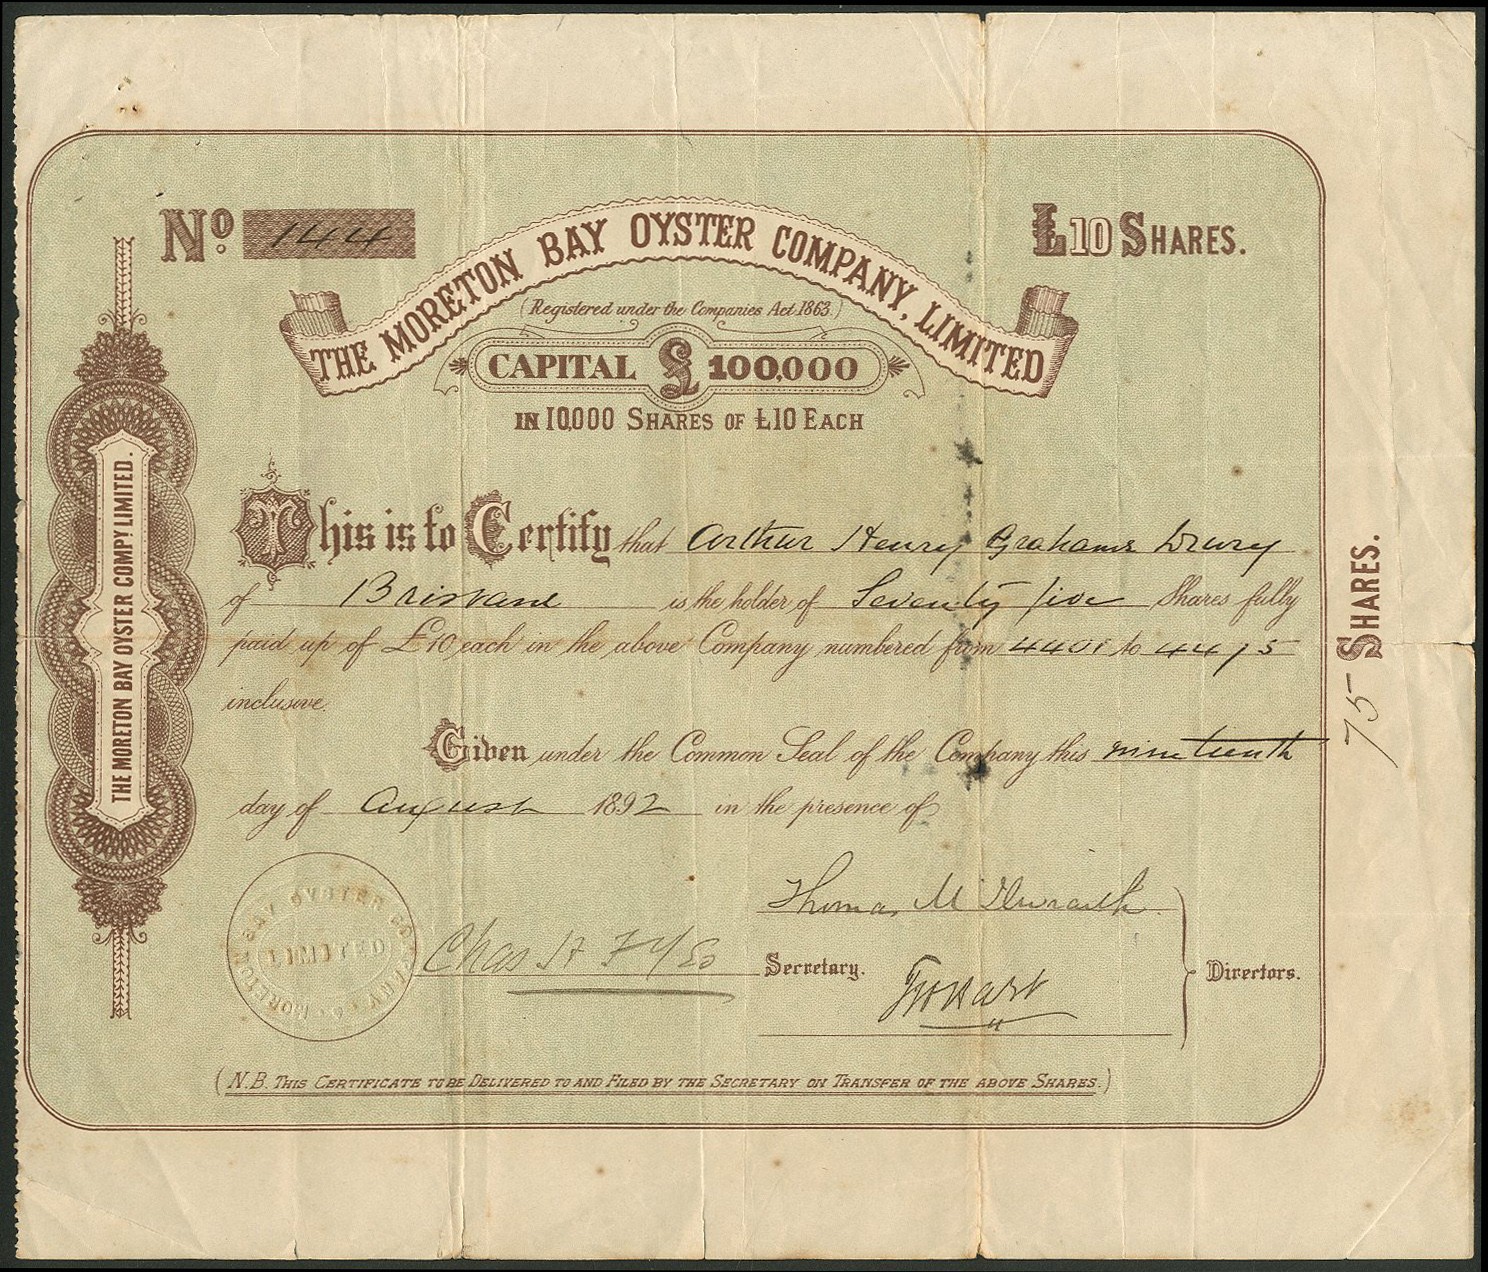 No. 144
£10 SHARES.
THE MORETON BAY OYSTER COMPANY, LIMITED
(Registered under the Companies Act 1863.)
CAPITAL £ 100,000
IN 10,000 SHARES OF £10 EACH
THE MORETON BAY OYSTER COMPY LIMITED.
This is to Certify that Arthur Henry Grahame Drury
of Brisbane is the holder of Seventy five Shares fully
paid up of £10 each in the above Company numbered from 4401 to 4475
inclusive.
Given under the Common Seal of the Company this nineteenth
day of August 1892 in the presence of
Thomas McIlwraith
Chas H Fyfe Secretary.
Directors.
MORETON BAY OYSTER COMPANY
LIMITED
(N.B. THIS CERTIFICATE TO BE DELIVERED TO AND FILED BY THE SECRETARY ON TRANSFER OF THE ABOVE SHARES.)
75 SHARES.